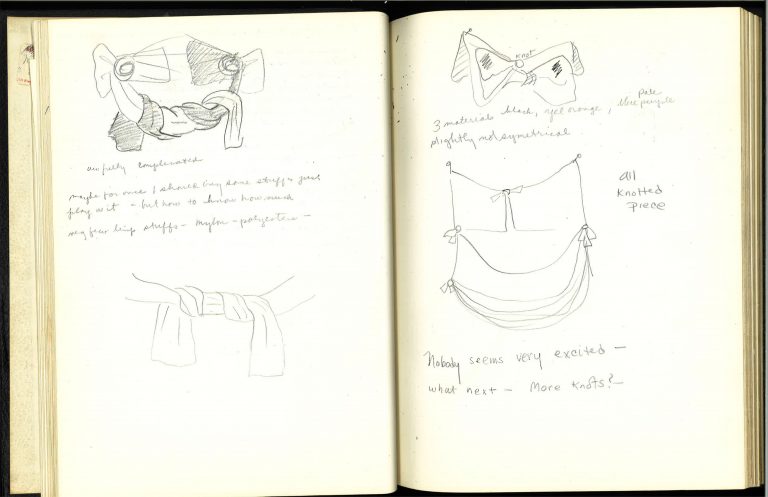 awfully complicated
maybe for once I should buy some stuff & just
play w it - but how to know how much
stuffs - nylon - polyester -
Knot
pale
3 materials black, yel orange, blue purple
slightly not symetrical
all
Knotted
Piece
Nobody seems very excited -
what next - More Knots? -